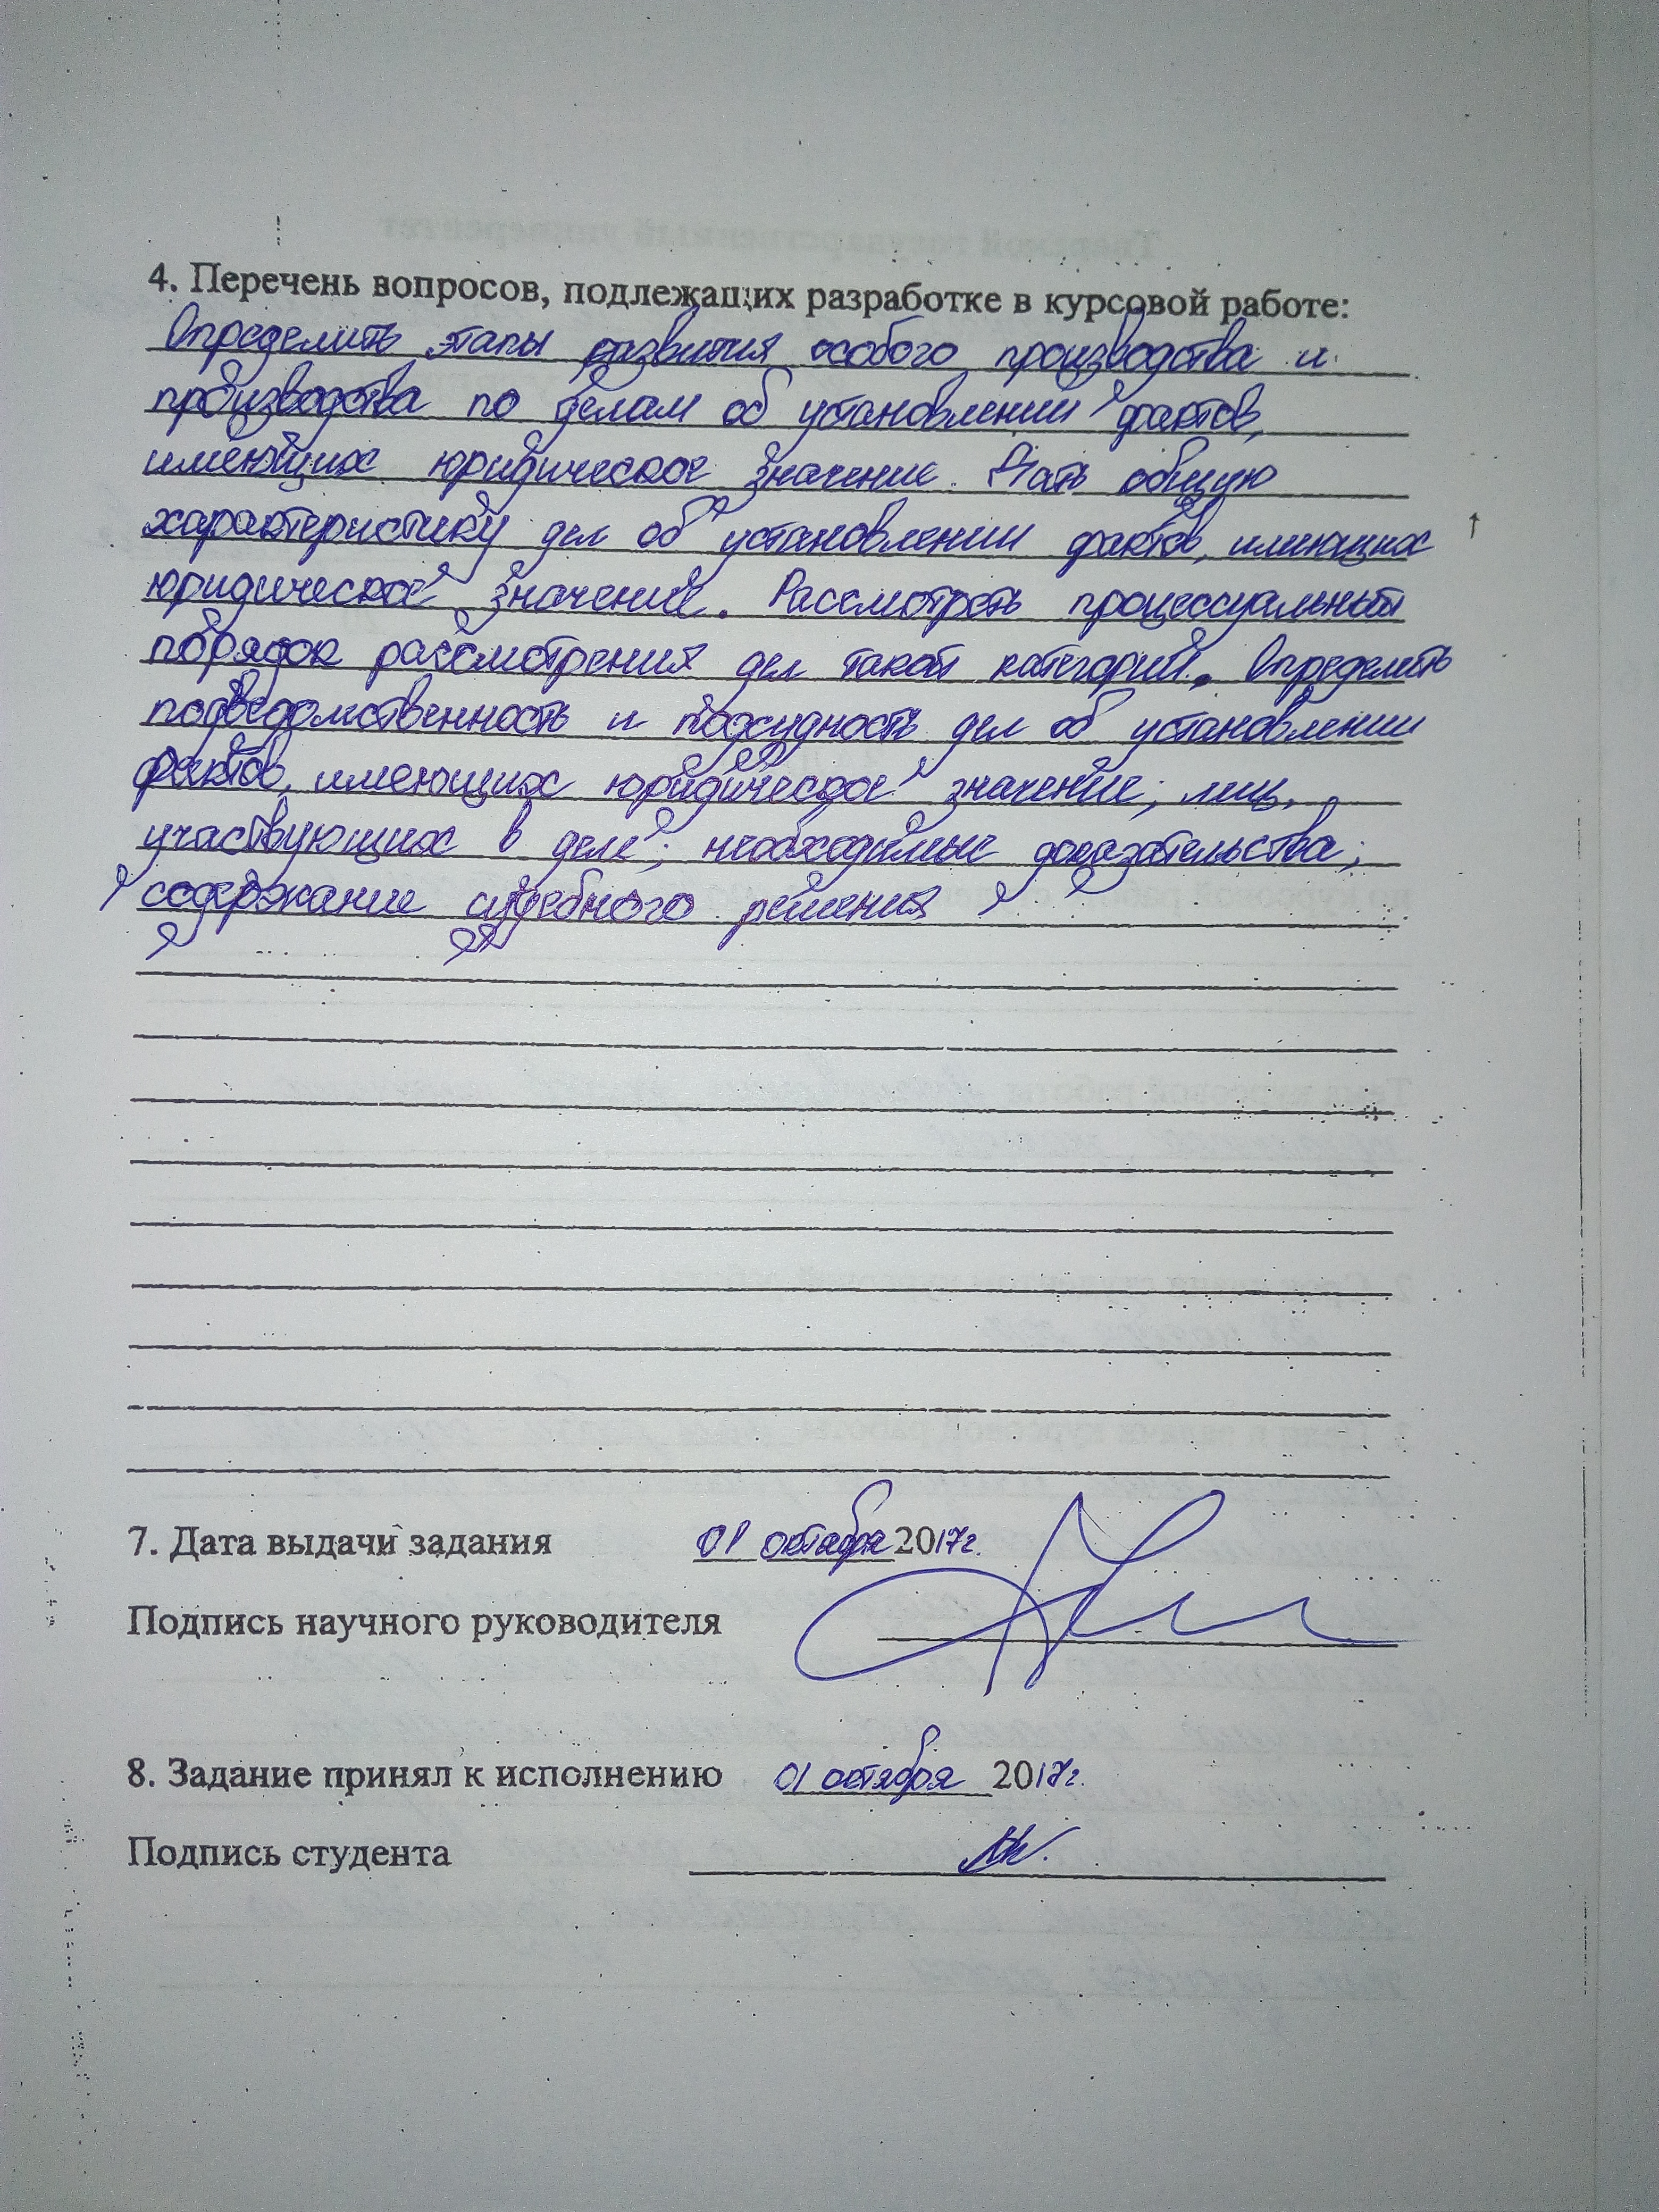 4. Перечень вопросов, подлежащих разработке в курсовой работе:
Определить этапы развития особого производства и
производства по делам об установлении фактов,
имеющих юридическое значение. Дать общую
характеристику дел об установлении фактов, имеющих
юридическое значение. Рассмотреть процессуальный
порядок рассмотрения дел такой категории. Определить
подведомственность и подсудность дел об установлении
фактов, имеющих юридическое значение; лиц,
участвующих в деле; необходимые доказательства;
содержание судебного решения
7. Дата выдачи задания 01 октября 2017г.
Подпись научного руководителя
8. Задание принял к исполнению 01 октября 2017г.
Подпись студента